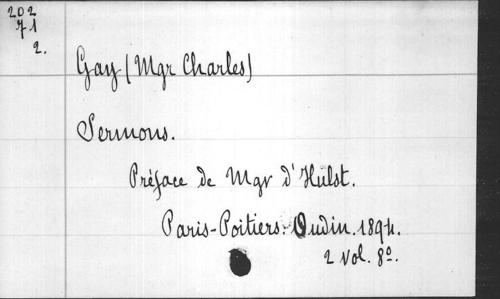 202
71
2.
Gay (Mgr Charles)
Sermons.
Préface de Mgr d'Hulst.
Paris-Poitiers: Oudin. 1894.
2 vol. 8º.